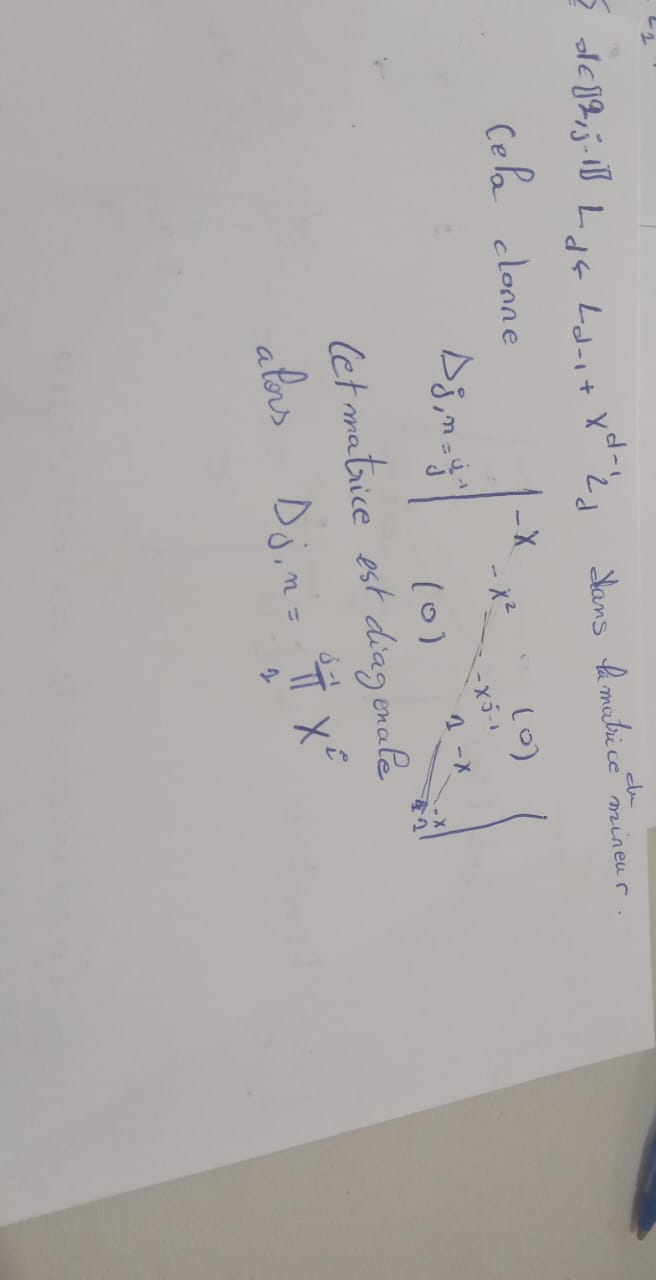 d∈⟦2,j-1⟧ L_d ← L_{d-1} + X^{d-1} L_d dans la matrice du mineur.
Cela donne
D_{j,n} = | -X -X² -X^{j-1} (0) 1 -X (0) -X 1 |
Cet matrice est diagonale
alors D_{j,n} = ∏_1^{j-1} X^i